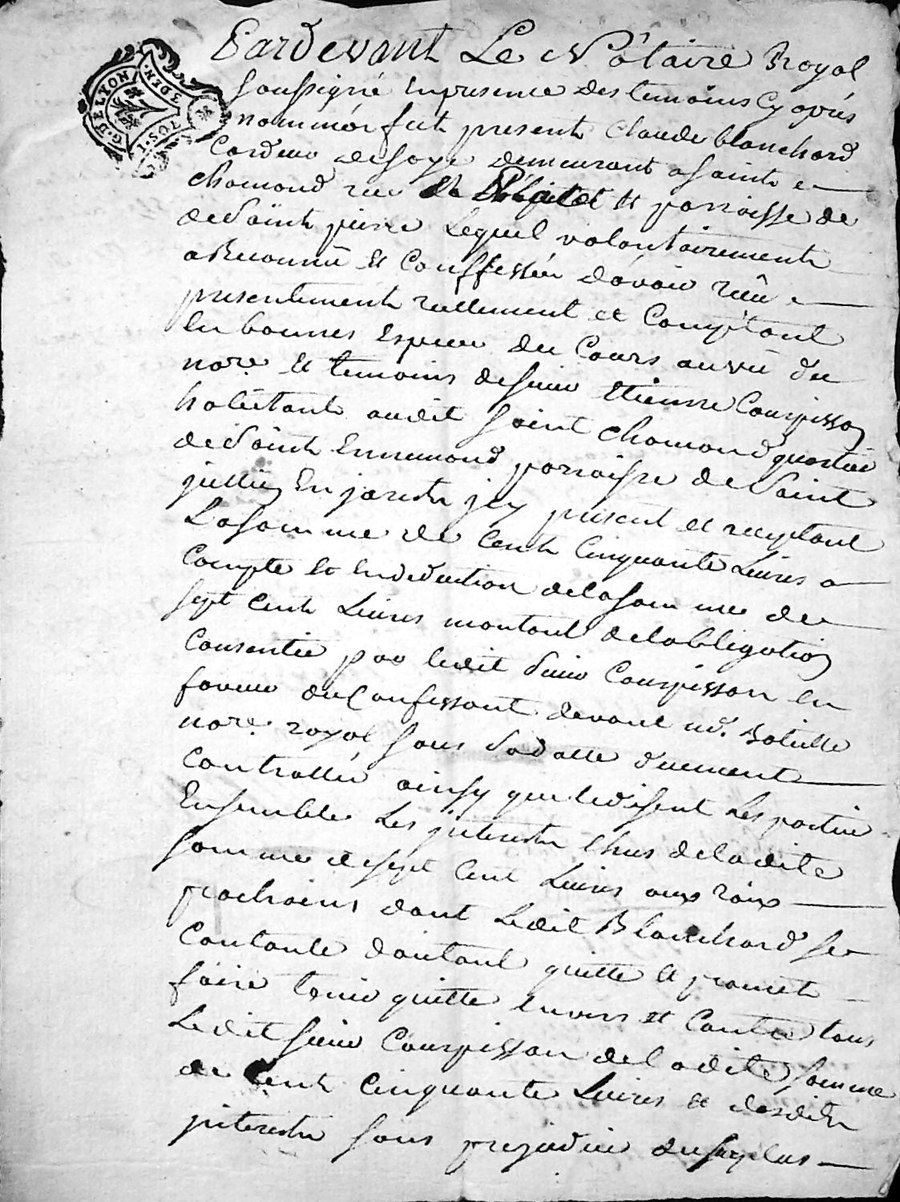 G. DE LYON
3 DEN.
1 SOL
Pardevant Le Notaire Royal
soussigné En presence des temoins Cy aprés
nommés fut present Claude Blanchard
Cordeur de soye demeurant a saint
chamond rue et parroisse de
de saint pierre Lequel volontairement
a Reconnu et Confessée d'avoir reçû
presentement reellement et Comptant
En bonnes Especes du Cours au vû du
nore. et temoins de sieur Etienne Courpisson
habitant audit saint chamond quartier
de saint Ennemond parroisse de saint
jullien En jarestz jcy present et acceptant
La somme de Cent Cinquante Livres a
Compte et En deduction de la somme de
sept Cent Livres montant de lobligation
Consentie par ledit sieur Courpisson en
faveur du Confessant devant
nore. royal sous sa datte duement
Controllée ainsy que le disent Les parties
Ensemble Les jnterests Echus de ladite
somme de sept Cent Livres aux roix
prochains dont Ledit Blanchard se
Contante d'autant quitte et promet
faire tenir quitte Envers et Contre tous
Ledit sieur Courpisson de ladite somme
de Cent Cinquante Livres et desdits
jnterests sans prejudice du surplus